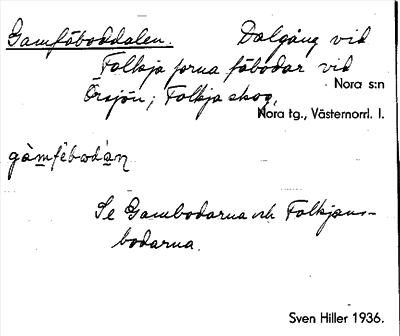 Gamfäboddalen. Dalgång vid
Falkja forna fäbodar vid
Nora s:n
Örsjön; Falkja skog,
Nora tg., Västernorrl. l.
gàmfèbodàn
Se Gambodarna och Falkjans-
bodarna.
Sven Hiller 1936.